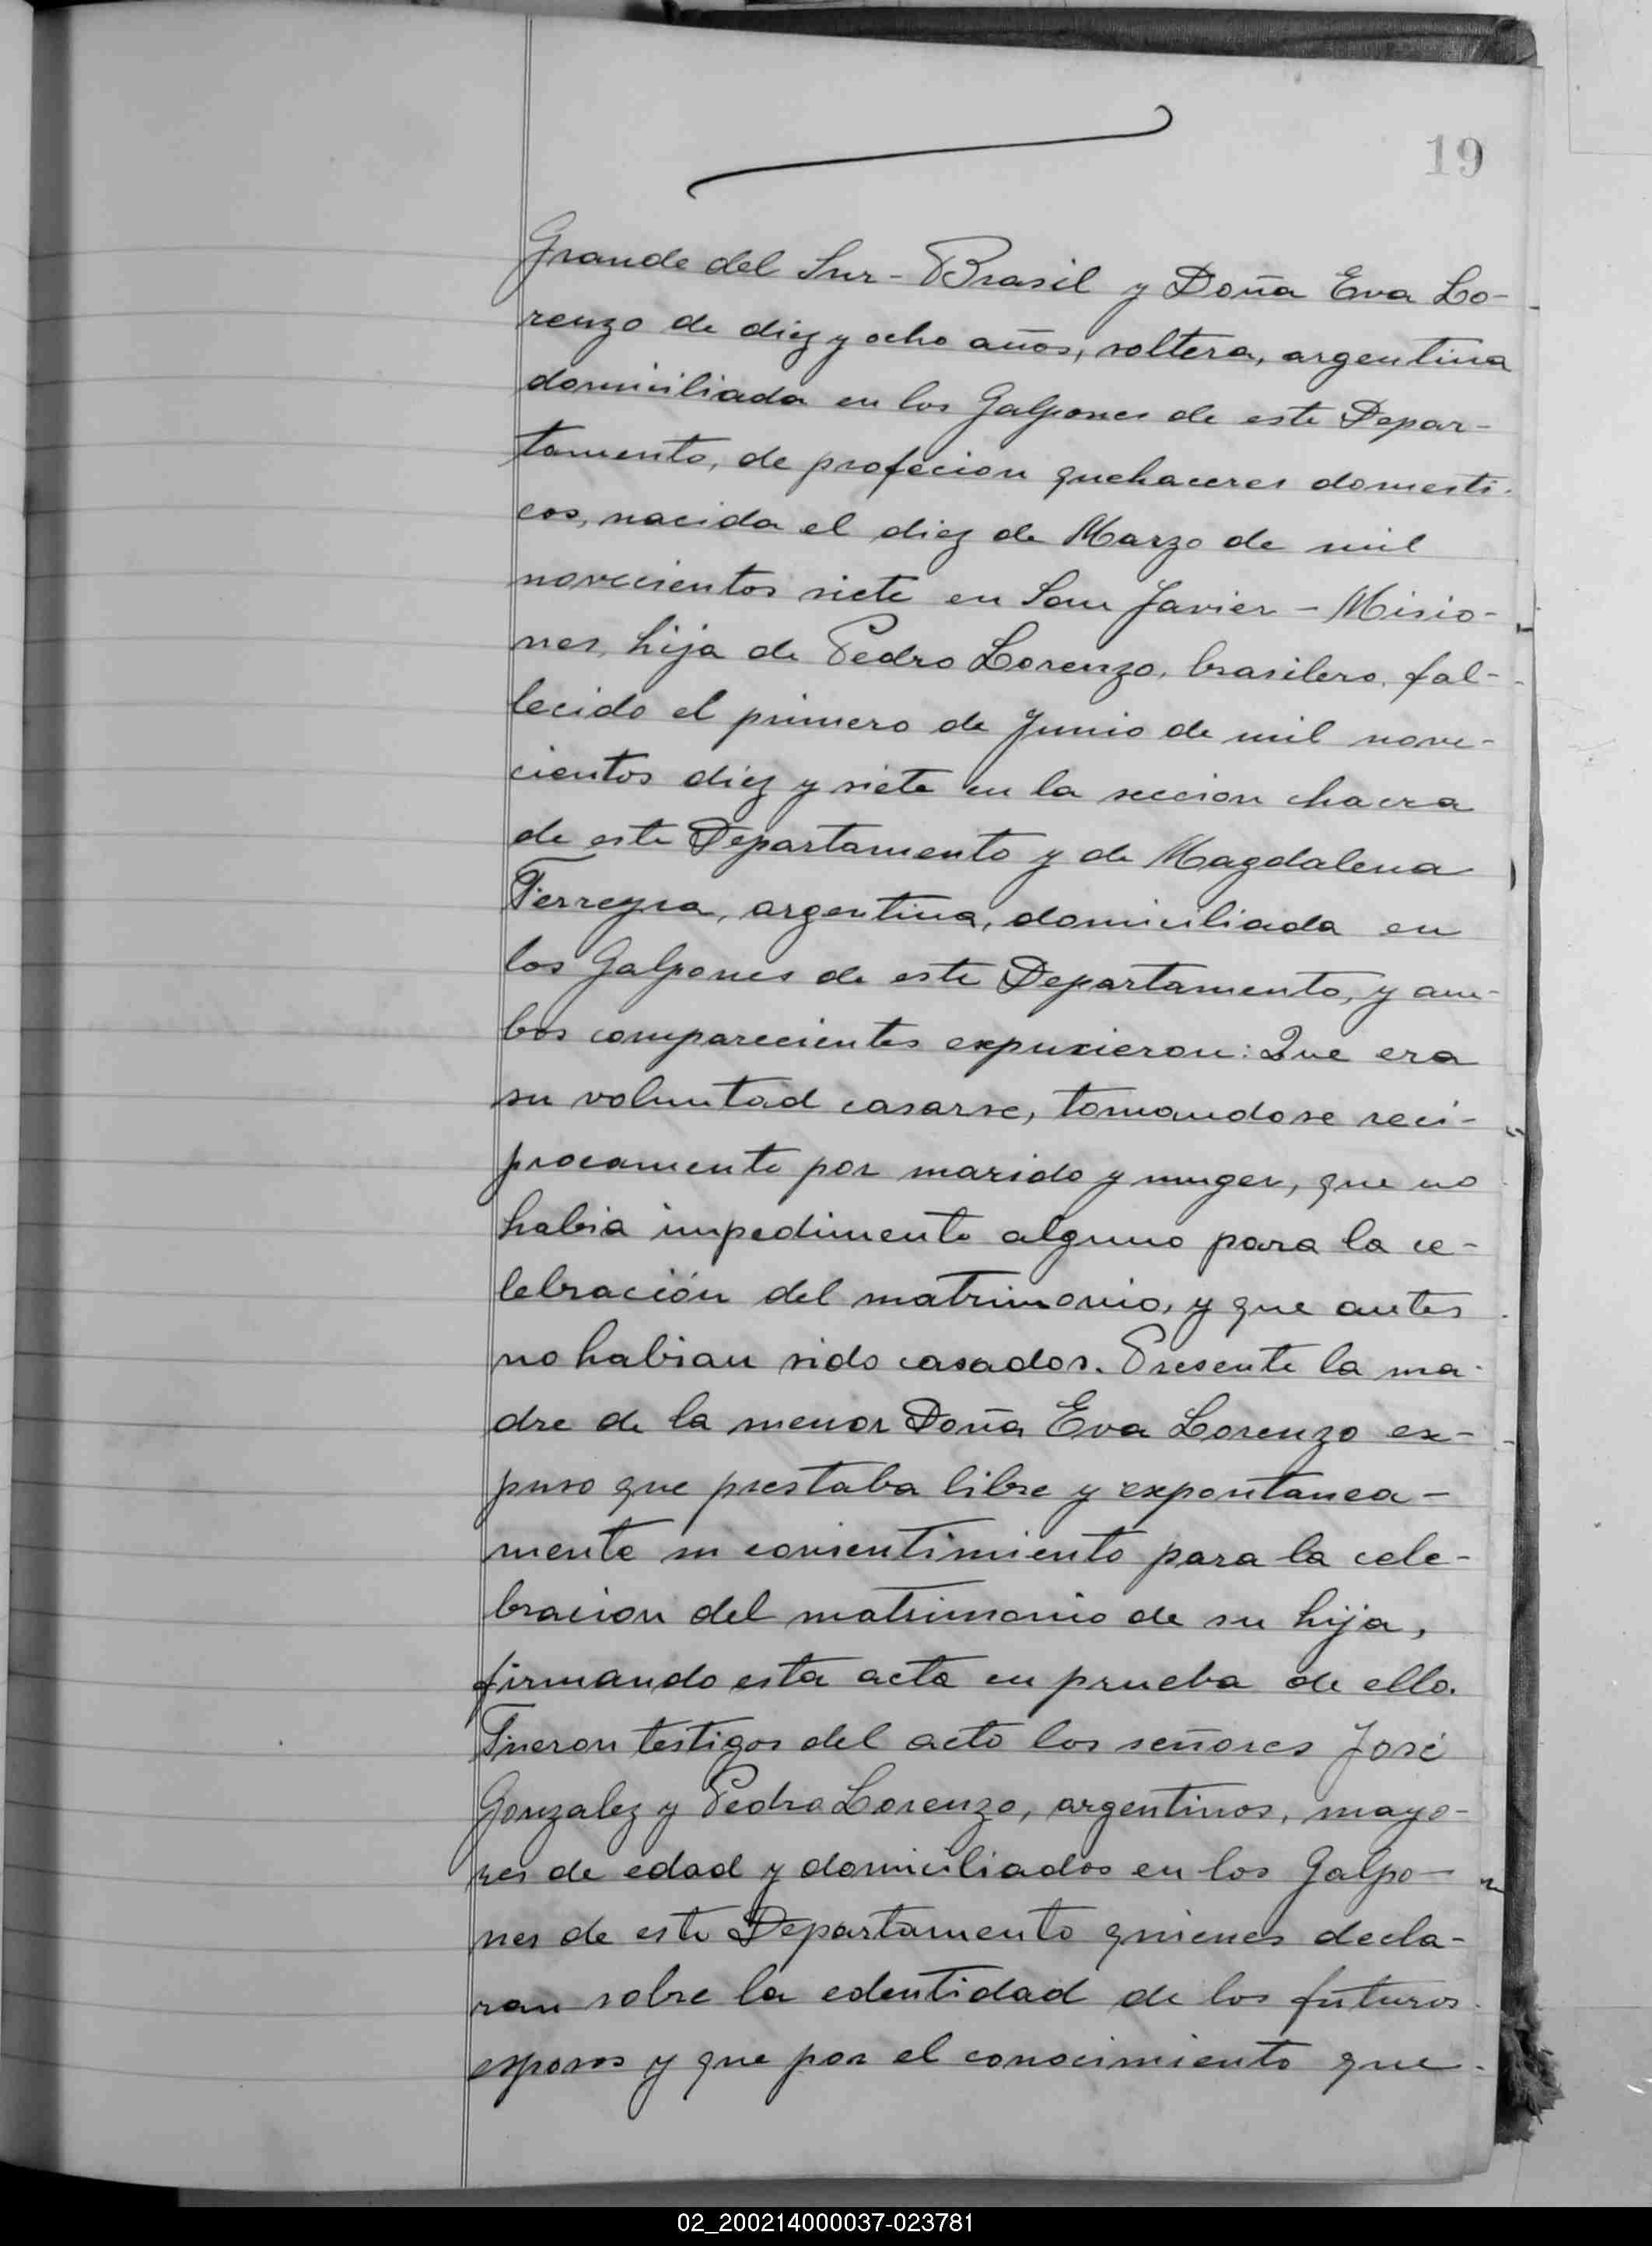 19
Grande del Sur - Brasil y Doña Eva Lo-
renzo de diez y ocho años, soltera, argentina
domiciliada en los Galpones de este Depar-
tamento, de profecion quehaceres domesti-
cos, nacida el diez de Marzo de mil
novecientos siete en San Javier - Misio-
nes, hija de Pedro Lorenzo, brasilero, fal-
lecido el primero de Junio de mil nove-
cientos diez y siete en la seccion chacra
de este Departamento y de Magdalena
Ferreyra, argentina, domiciliada en
los Galpones de este Departamento, y am-
bos comparecientes expusieron: Que era
su voluntad casarse, tomandose reci-
procamente por marido y muger, que no
habia impedimento alguno para la ce-
lebración del matrimonio, y que antes
no habian sido casados. Presente la ma-
dre de la menor Doña Eva Lorenzo ex-
puso que prestaba libre y expontanea-
mente su consentimiento para la cele-
bracion del matrimonio de su hija,
firmando esta acta en prueba de ello.
Fueron testigos del acto los señores José
Gonzalez y Pedro Lorenzo, argentinos, mayo-
res de edad y domiciliados en los Galpo-
nes de este Departamento quienes decla-
ran sobre la edentidad de los futuros
esposos y que por el conocimiento que
02_200214000037-023781